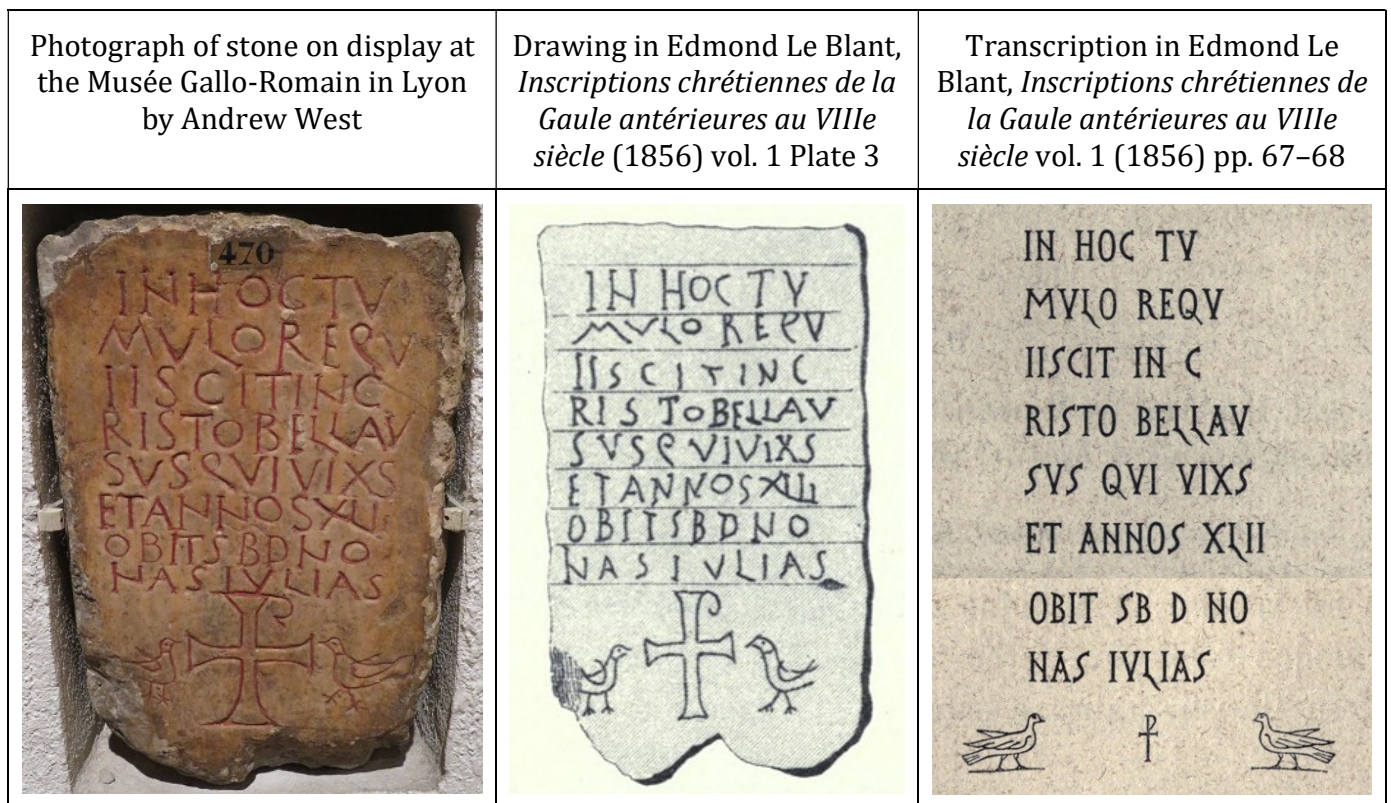 Photograph of stone on display at
the Musée Gallo-Romain in Lyon
by Andrew West
Drawing in Edmond Le Blant,
Inscriptions chrétiennes de la
Gaule antérieures au VIIIe
siècle (1856) vol. 1 Plate 3
Transcription in Edmond Le
Blant, Inscriptions chrétiennes de
la Gaule antérieures au VIIIe
siècle vol. 1 (1856) pp. 67–68
470
INHOCTV
MVLOREQV
IISCITINC
RISTOBELLAV
SVSQVIVIXS
ETANNOSXLII
OBITSBDNO
NASIVLIAS
IN HOC TV
MVLO REQV
IISCITINC
RISTOBELLAV
SVSQVIVIXS
ETANNOSXLII
OBITSBDNO
NASIVLIAS
IN HOC TV
MVLO REQV
IISCIT IN C
RISTO BELLAV
SVS QVI VIXS
ET ANNOS XLII
OBIT SB D NO
NAS IVLIAS